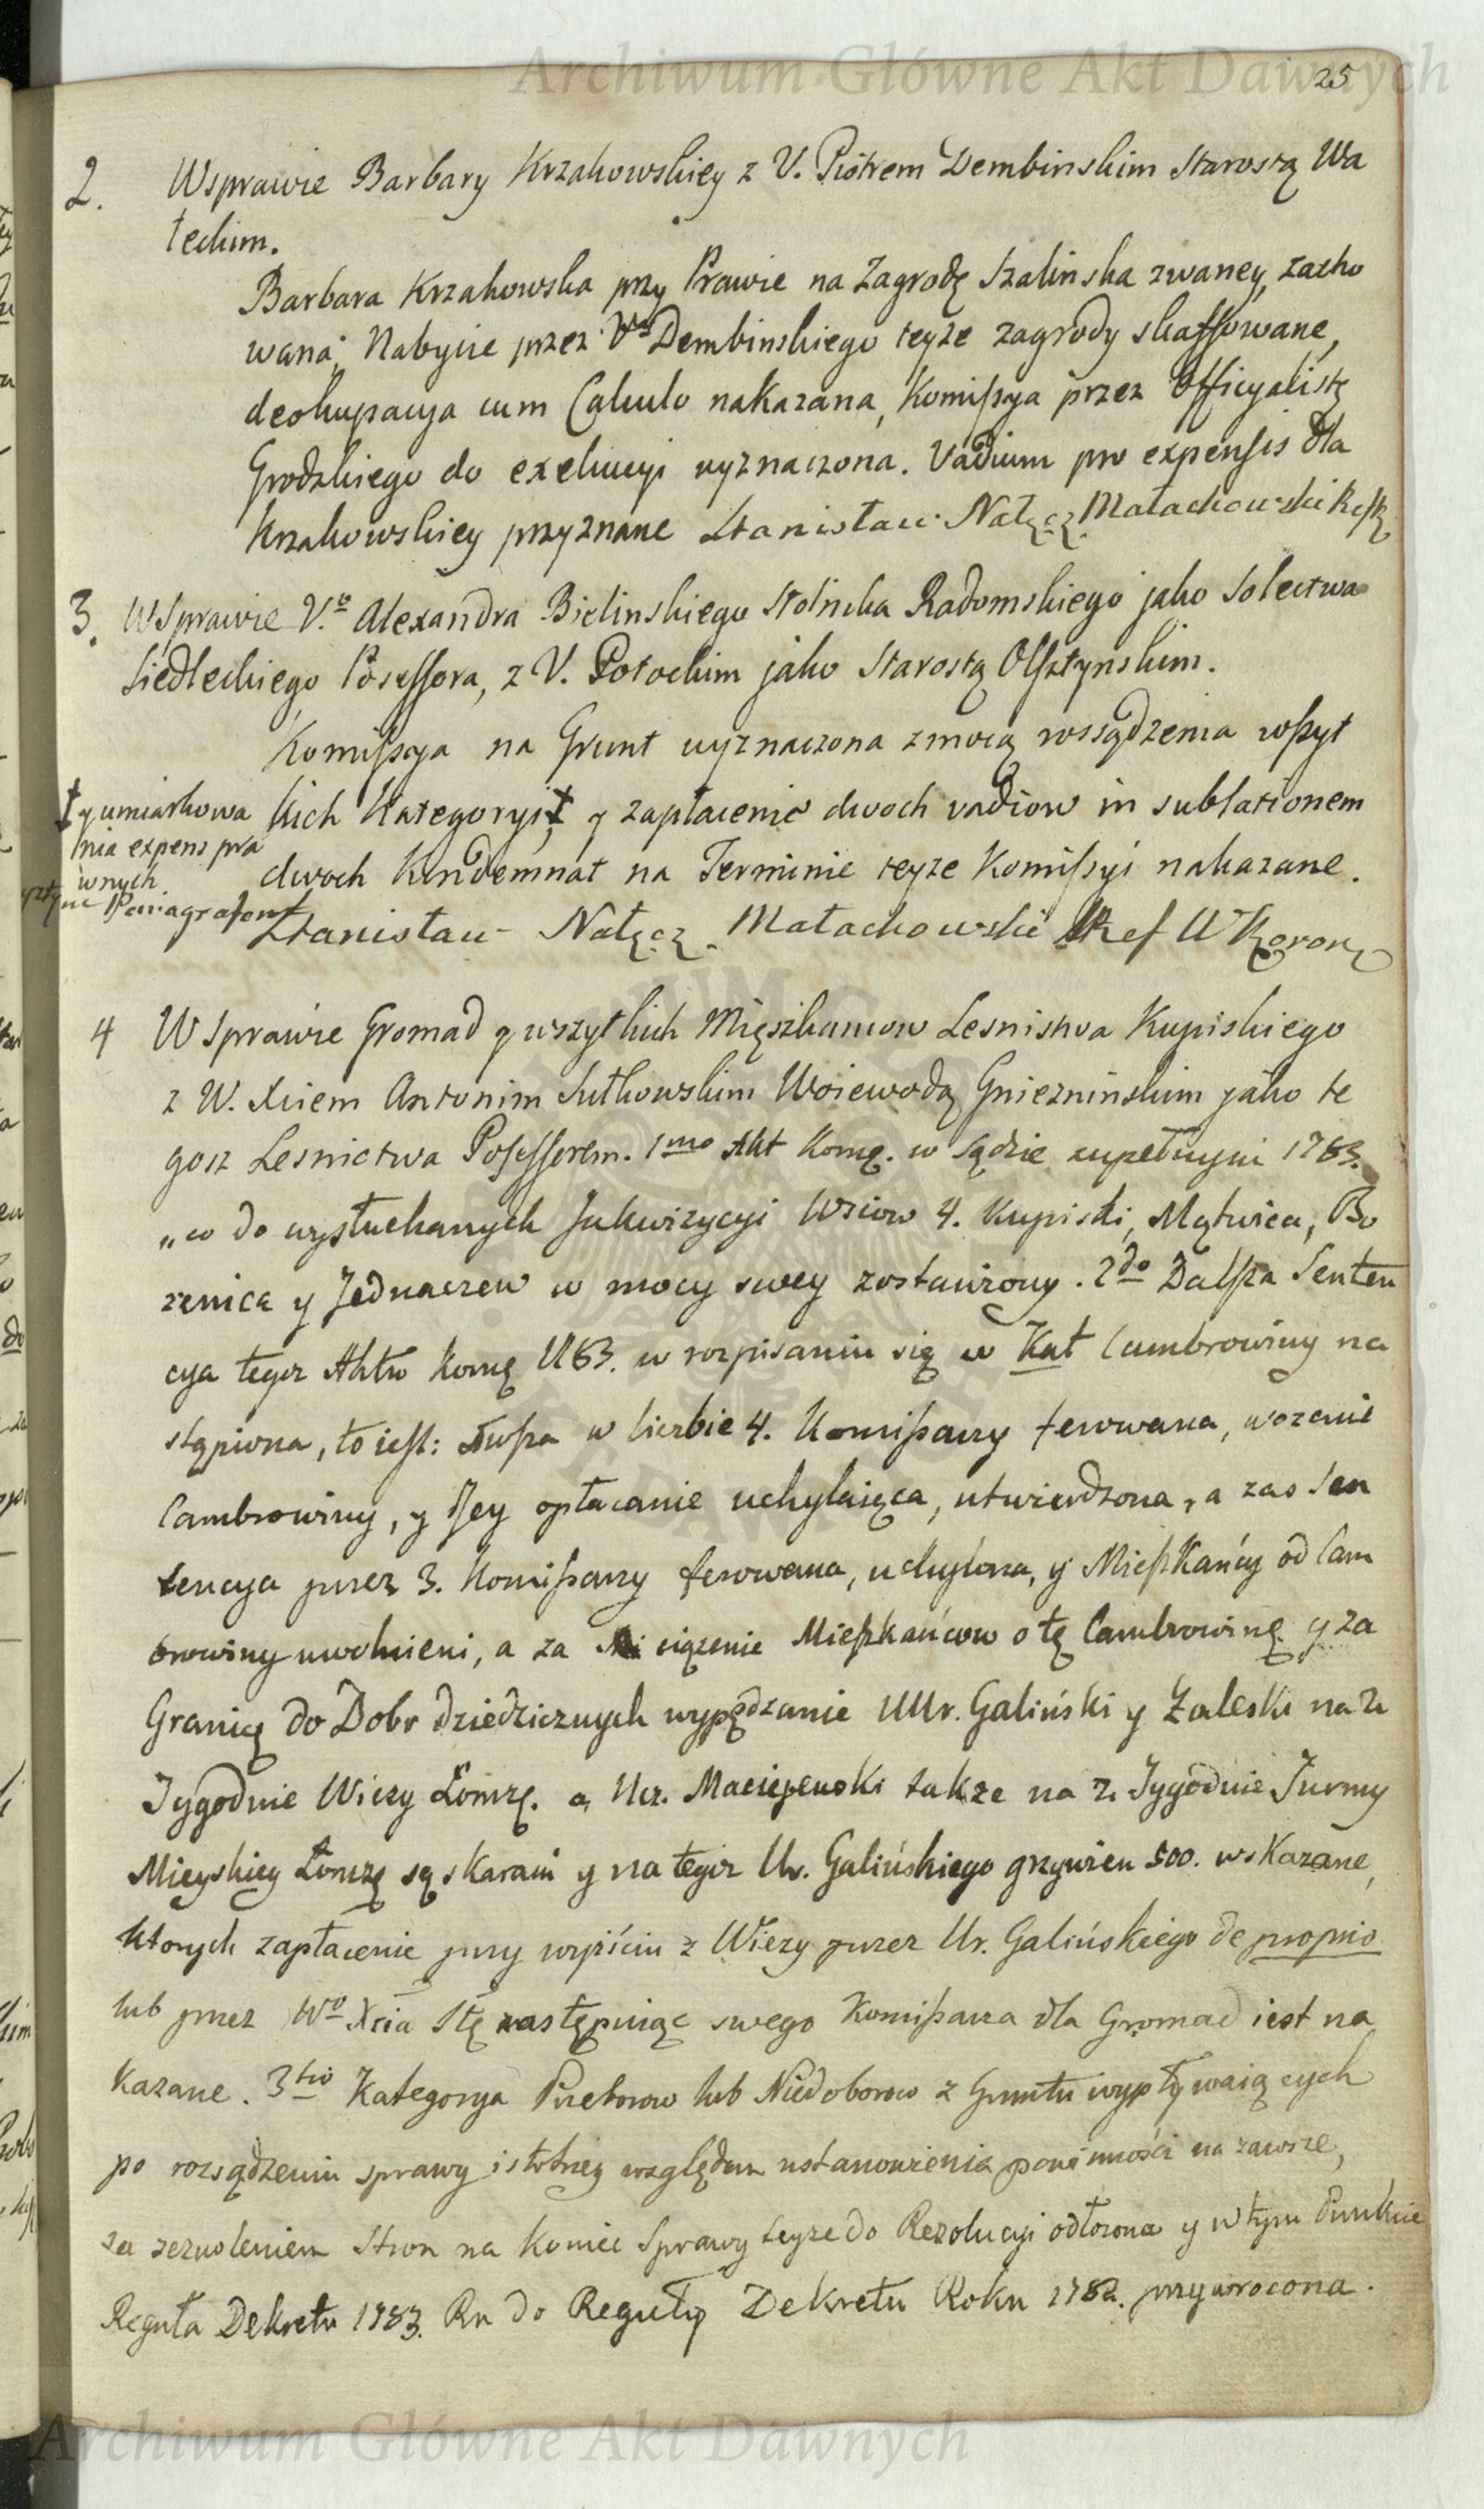 Archiwum Główne Akt Dawnych
25
2. Wsprawie Barbary Krzakowskiey z V. Piotrem Dembinskim Starostą Wa
łeckim.
Barbara Krzakowska przy Prawie na Zagrodę Szalinska zwaney, zacho
wana; Nabycie przez Wo Dembinskiego teyze zagrody skassowane,
deokupacya cum Calculo nakazana, Komissya przez Officyalistę
Grodzkiego do exekucyi wyznaczona. Vadium pro expensis dla
Krzakowskiey przyznane Stanisław Nałęcz Małachowski Refk
3. WSprawie V.o Alexandra Bielinskiego Stolnika Radomskiego jako Solectwa
Siedleckiego Possessora, z V. Potockim jako Starostą Olsztynskim.
Komissya na Grunt wyznaczona zmocą rossądzenia wszyt
kich Kategoryi, ‡ y zapłacenie dwoch vadiow in sublationem
‡ y umiarkowa
nia expens pra
wnych
Paragrafem
dwoch Kondemnat na Terminie teyze Komissyi nakazane.
Stanisław Nałęcz Małachowski Ref W Koronn
4 W Sprawie Gromad y wszytkich Mięszkancow Lesnistwa Kupiskiego
z W. Xciem Antonim Sułkowskim Woiewodą Gnieznińskim jako te
gosz Lesnictwa Possessorem. 1mo Akt Komę. w Sądzie zupełnym 1783.
„co do wysłuchanych Inkwizycyi Wsiow 4. Kupiski, Mątwica, Bo
zenica y Jednaczew w mocy swey zostawiony. 2do Dalsza Senten
cya tegoz Aktu Komę 1783. w rozpisaniu się w Kat Cambrowiny na
stąpiona, to iest: Susza w liczbie 4. Komissarzy ferowana, wozenie
Cambrowiny, y Jey opłacanie uchylaiąca, utwierdzona, a zas Sen
tencya przez 3. Komissarzy ferowana, uchylona, y Mieszkańcy od Cam
browiny uwolnieni, a za ciązenie Mieszkańcow o tę Cambrowinę y za
Granicę do Dobr dziedzicznych wypędzanie UUr. Galiński y Zaleski na 2
Tygodnie Wiezy Łomzę. a Ucz. Macieiewski takze na 2. Tygodnie Turmy
Mieyskiey Łomzę są skarani y na tegoz Ur. Galińskiego grzywien 500. wskazane,
ktorych zapłacenie przy wyiściu z Wiezy przez Ur. Galińskiego de proprio
lub przez Wo Xcia Stę zastępuiąc swego Komissarza dla Gromad iest na
kazane. 3tio Kategorya Preborow lub Niedoborow z Gruntu wypływaiących
po rozsądzeniu sprawy istotney względem ustanowienia powinności na zawsze,
za zezwoleniem Stron na koniec Sprawy teyze do Rezolucyi odłozona y w tym Punkcie
Reguła Dekretu 1783. Ru do Reguły Dekretu Roku 1782. przywrocona.
Archiwum Główne Akt Dawnych